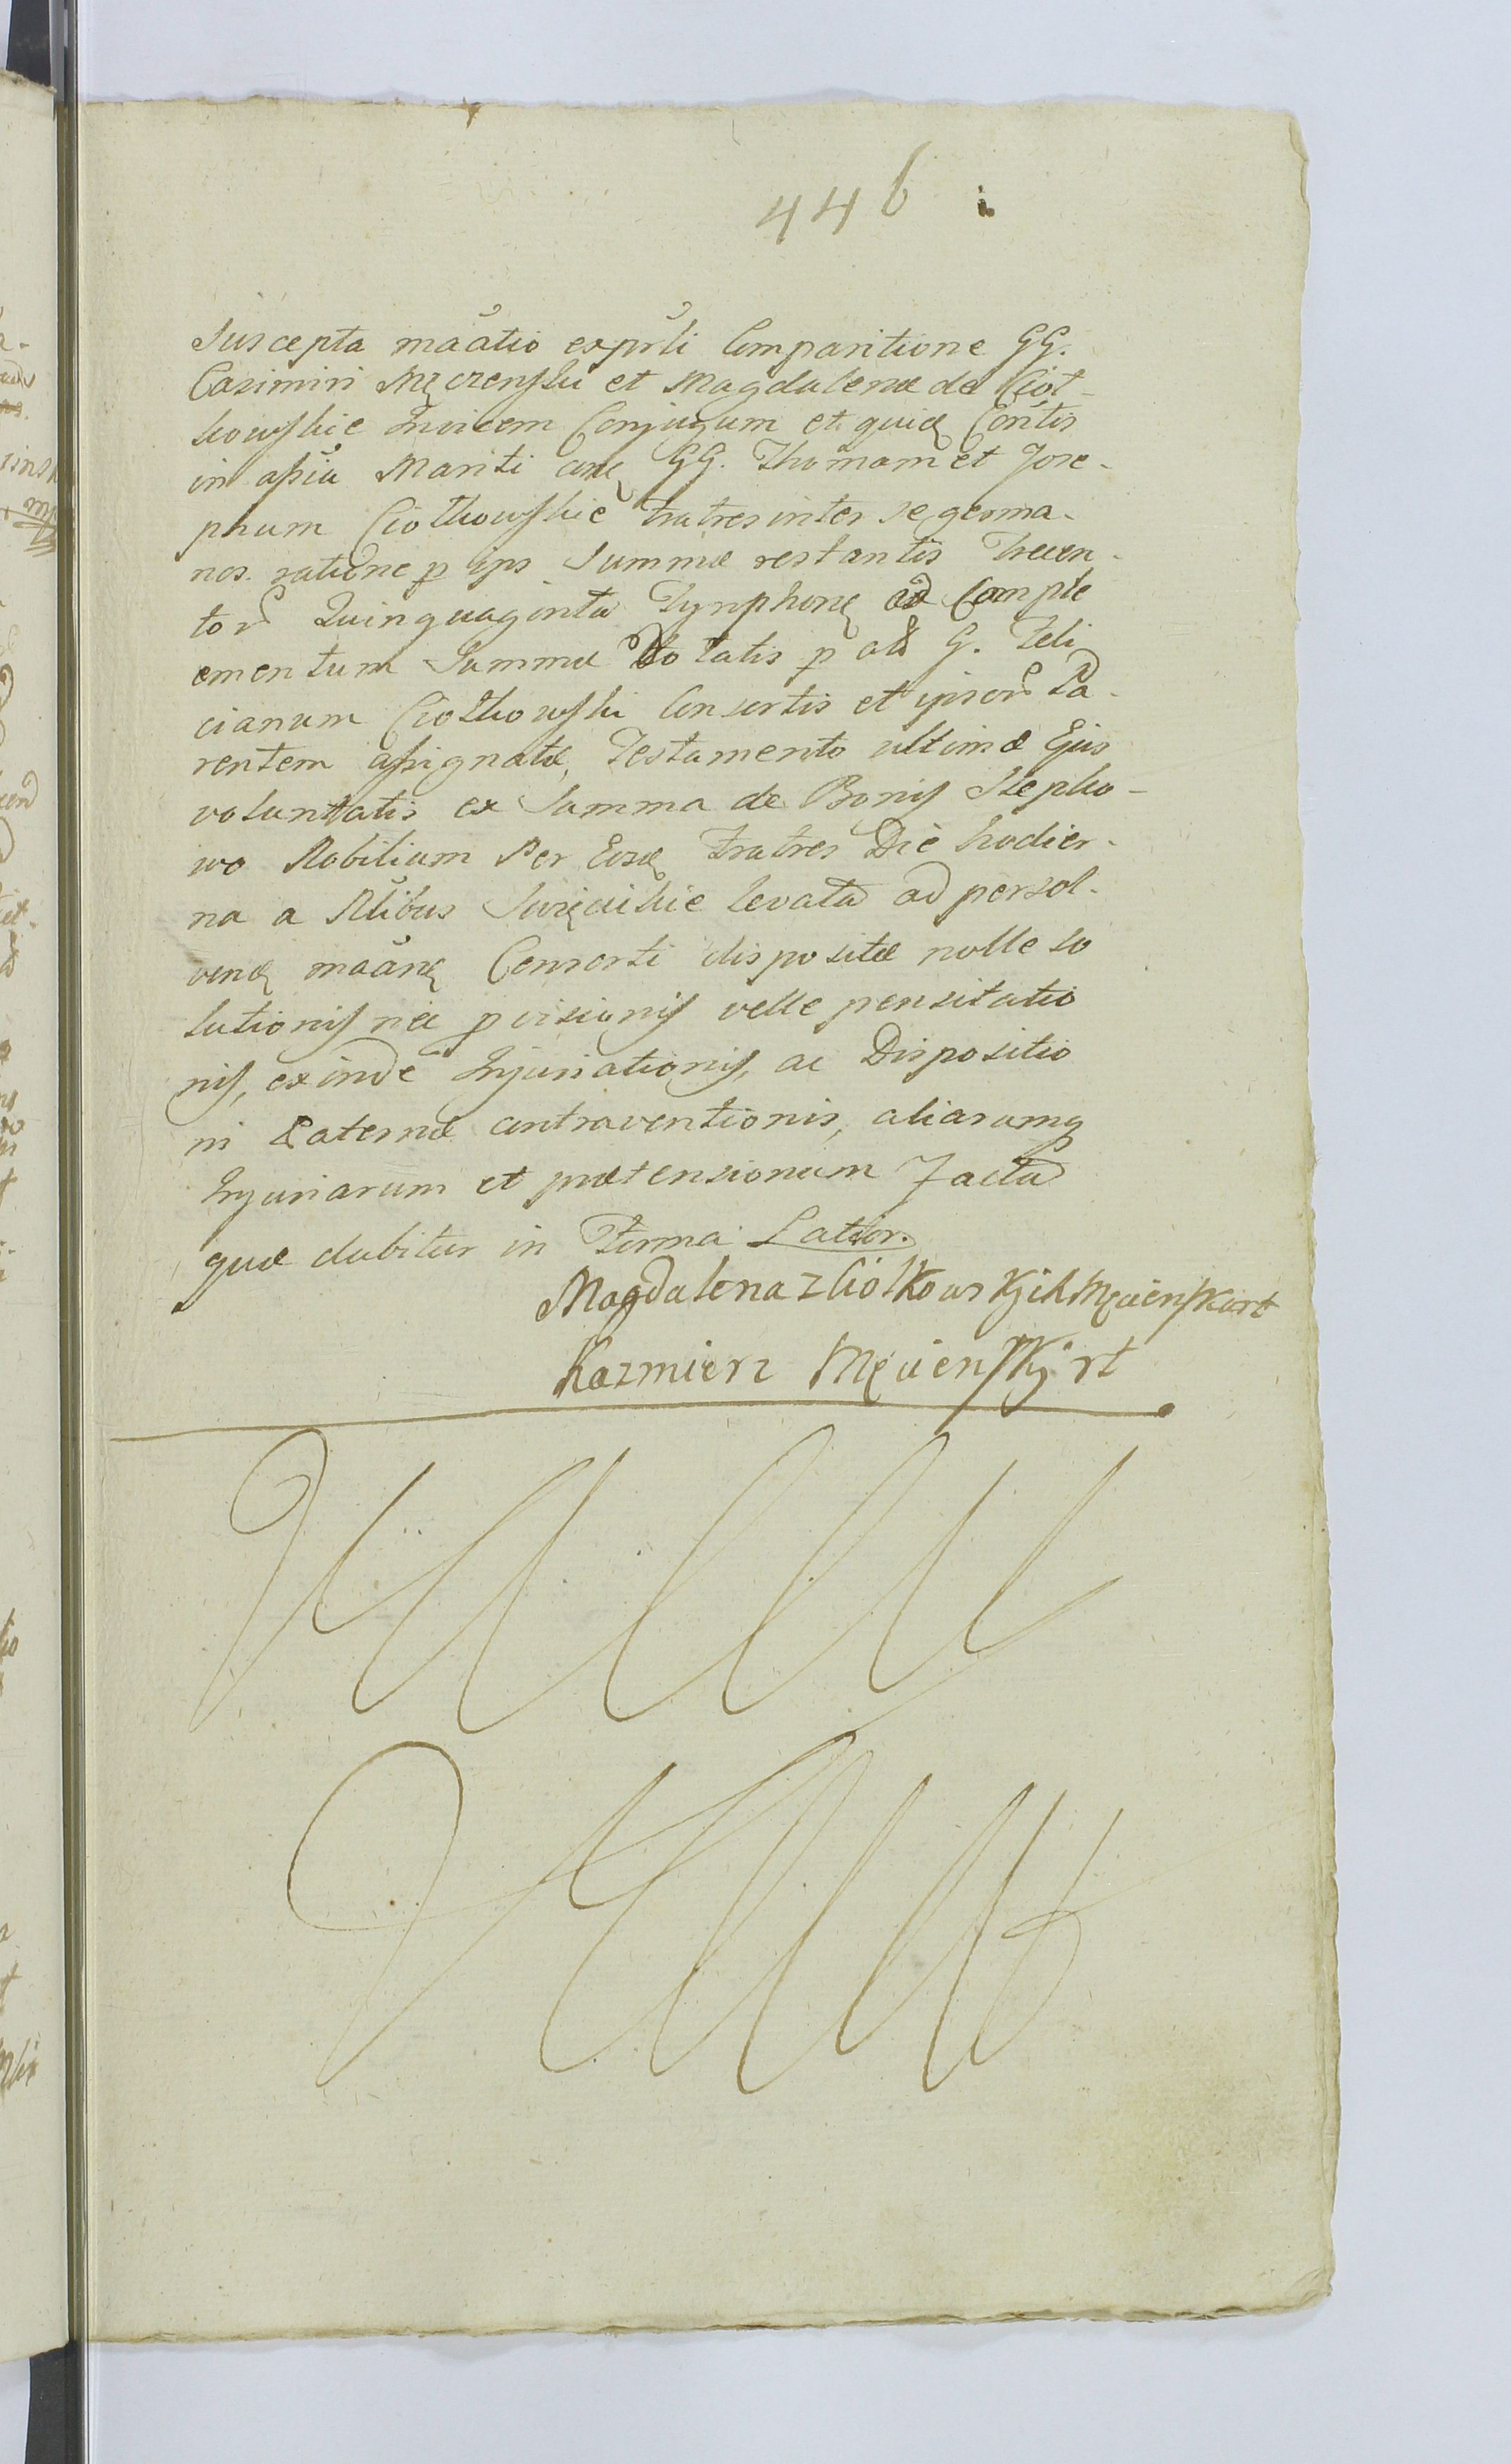 446
Suscepta maãtio exprsli Comparitione GG.
Casimiri Męczenski et Magdalenæ de Cioł-
kowskie Invicem Conjugum et quidę Contis
in assia Mariti contę GG. Thomam et Jose-
phum Ciołkowskie Fratres inter se germa-
nos. ratione p ips Summæ restantis Trecen-
tor Quinquaginta Tynphonę ad Comple
ementum Summæ Dotalis p olĩ G. Feli
cianum Ciołkowski Consortis et ipsor Pa-
rentem assignatæ, Testamento ultimæ Ejus
voluntatis ex Summa de Bonis Stepko-
wo Nobilium Per Eosdę Fratres Die hodier-
na a Nlibus levata ad persol-
vendę maãnę Consorti dispositæ nolle so
lutionis nec pvisionis velle pensitatio
nis, exinde Injuriationis, ac Dispositio
ni Paternæ contraventionis, aliarumq
Injuriarum et prætensionum Facta
quæ dabitur in Forma Latior.
Magdalena z Ciołkowskich Męcienska rt
Kazmierz Męcienskj rt